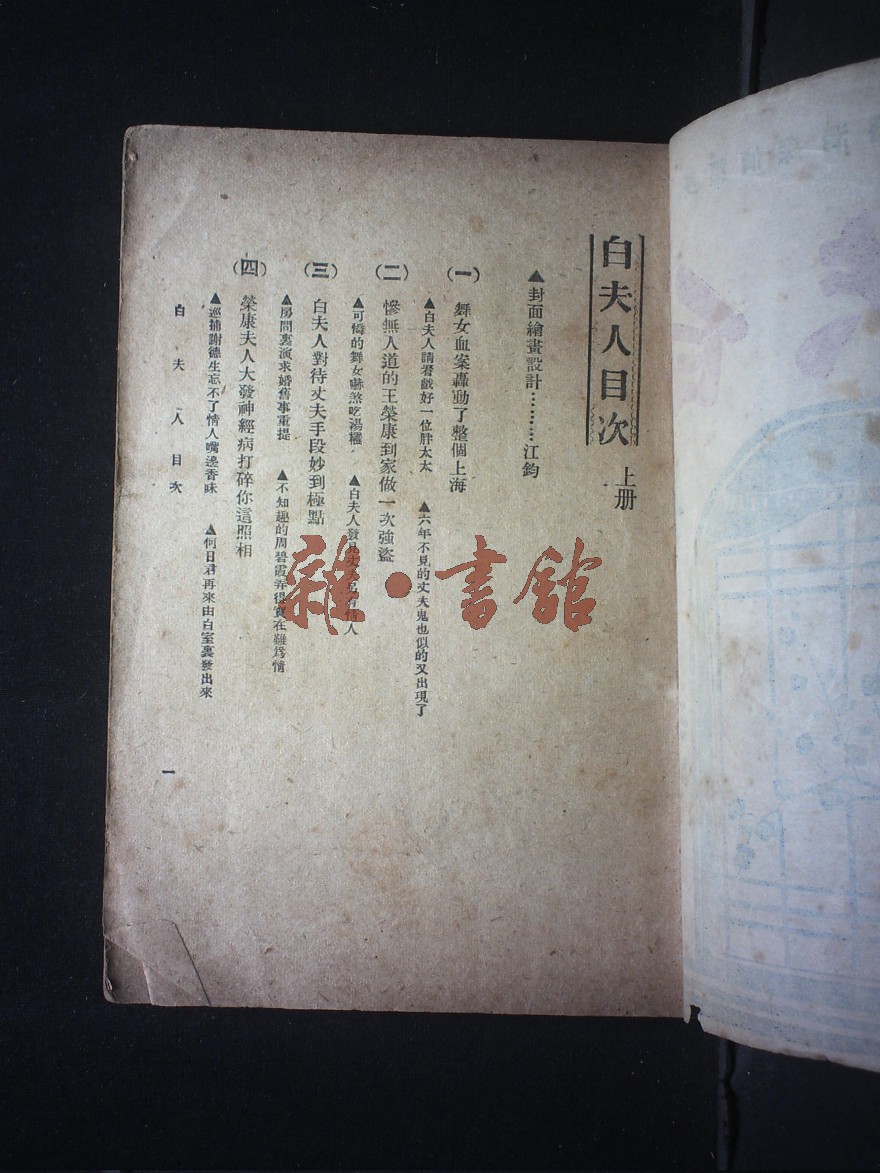 白夫人目次 上册
▲封面繪畫設計………江鈞
(一) 舞女血案轟動了整個上海
▲白夫人請看戲好一位胖太太 ▲六年不見的丈夫鬼也似的又出現了
(二) 慘無人道的王榮康到家做一次強盜
▲可憐的舞女嚇煞吃湯糰 ▲白夫人發見丈夫另有情人
(三) 白夫人對待丈夫手段妙到極點
▲房間裏演求婚舊事重提 ▲不知趣的周碧霞弄得實在難為情
(四) 榮康夫人大發神經病打碎你這照相
▲巡捕謝德生忘不了情人嘴邊香味 ▲何日君再來由白室裏發出來
白夫人目次
一
雜·書館